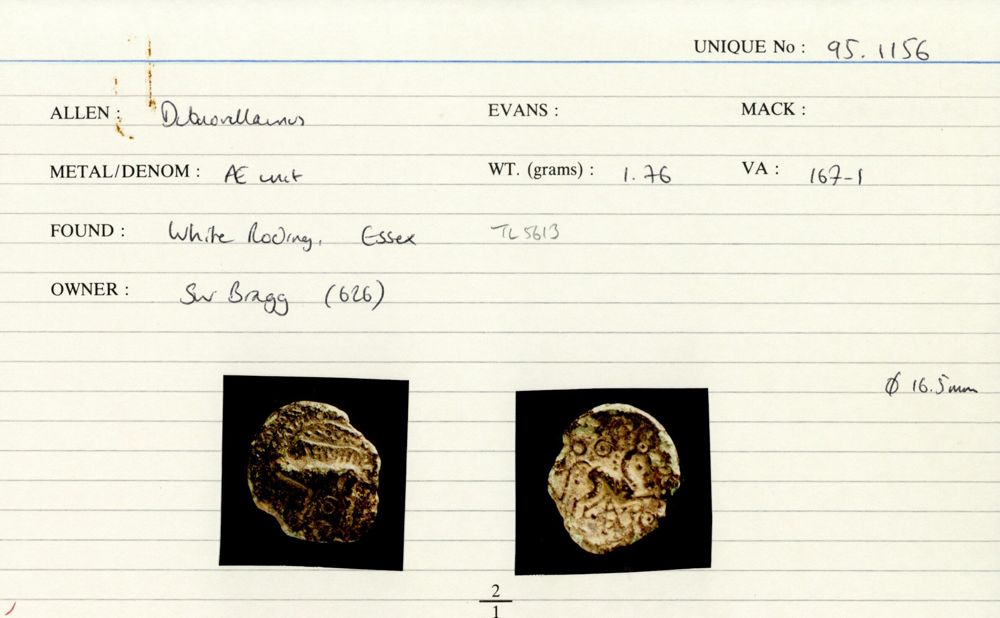 UNIQUE No : 95.1156
ALLEN : EVANS : MACK :
METAL/DENOM : Æ unit WT. (grams) : 1.76 VA : 167-1
FOUND : White Roding, Essex TL 5613
OWNER : Bragg (626)
Ø 16.5mm
2
1